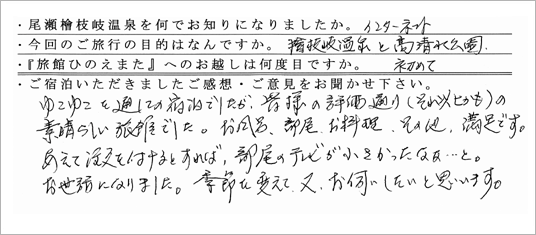 ・尾瀬檜枝岐温泉を何でお知りになりましたか。 インターネット
・今回のご旅行の目的はなんですか。 檜枝岐温泉と高清水公園.
・『旅館ひのえまた』へのお越しは何度目ですか。 初めて
・ご宿泊いただきましたご感想・ご意見をお聞かせ下さい。
ゆこゆこを通しての宿泊でしたが、皆様の評価通り(それ以上かも)の
素晴らしい旅館でした。お風呂、部屋、お料理、その他、満足です。
あえて注文を付けるとすれば、部屋のテレビが小さかったなぁ…と。
お世話になりました。季節を変えて、又、お伺いしたいと思います。